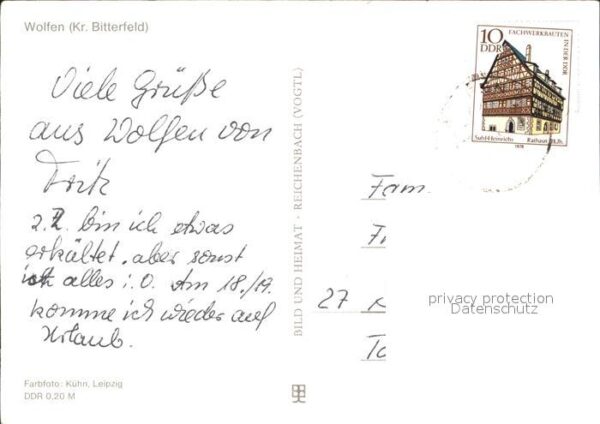 Wolfen (Kr. Bitterfeld)
Viele Grüße
aus Wolfen von
Fritz
z. Z. bin ich etwas
erkältet, aber sonst
ist alles i. O. Am 18./19.
komme ich wieder auf
Urlaub.
Farbfoto: Kühn, Leipzig
DDR 0,20 M
BILD UND HEIMAT · REICHENBACH (VOGTL)
10
DDR
FACHWERKBAUTEN
IN DER DDR
Suhl-Heinrichs Rathaus
1978
Fam.
27
privacy protection
Datenschutz